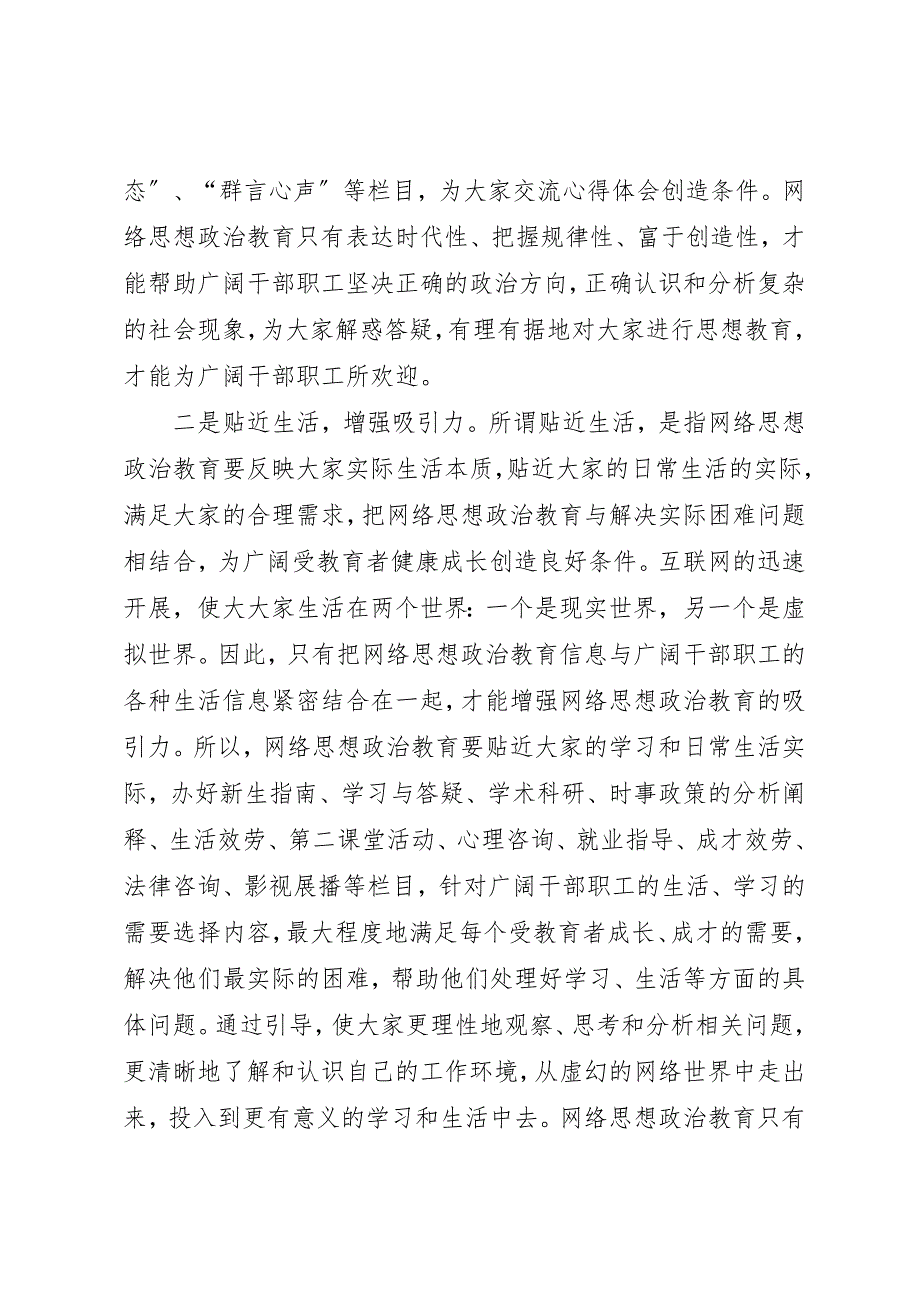 态〞、“群言心声〞等栏目，为大家交流心得体会创造条件。网
络思想政治教育只有表达时代性、把握规律性、富于创造性，才
能帮助广阔干部职工坚决正确的政治方向，正确认识和分析复杂
的社会现象，为大家解惑答疑，有理有据地对大家进行思想教育，
才能为广阔干部职工所欢迎。
二是贴近生活，增强吸引力。所谓贴近生活，是指网络思想
政治教育要反映大家实际生活本质，贴近大家的日常生活的实际，
满足大家的合理需求，把网络思想政治教育与解决实际困难问题
相结合，为广阔受教育者健康成长创造良好条件。互联网的迅速
开展，使大大家生活在两个世界：一个是现实世界，另一个是虚
拟世界。因此，只有把网络思想政治教育信息与广阔干部职工的
各种生活信息紧密结合在一起，才能增强网络思想政治教育的吸
引力。所以，网络思想政治教育要贴近大家的学习和日常生活实
际，办好新生指南、学习与答疑、学术科研、时事政策的分析阐
释、生活效劳、第二课堂活动、心理咨询、就业指导、成才效劳、
法律咨询、影视展播等栏目，针对广阔干部职工的生活、学习的
需要选择内容，最大程度地满足每个受教育者成长、成才的需要，
解决他们最实际的困难，帮助他们处理好学习、生活等方面的具
体问题。通过引导，使大家更理性地观察、思考和分析相关问题，
更清晰地了解和认识自己的工作环境，从虚幻的网络世界中走出
来，投入到更有意义的学习和生活中去。网络思想政治教育只有